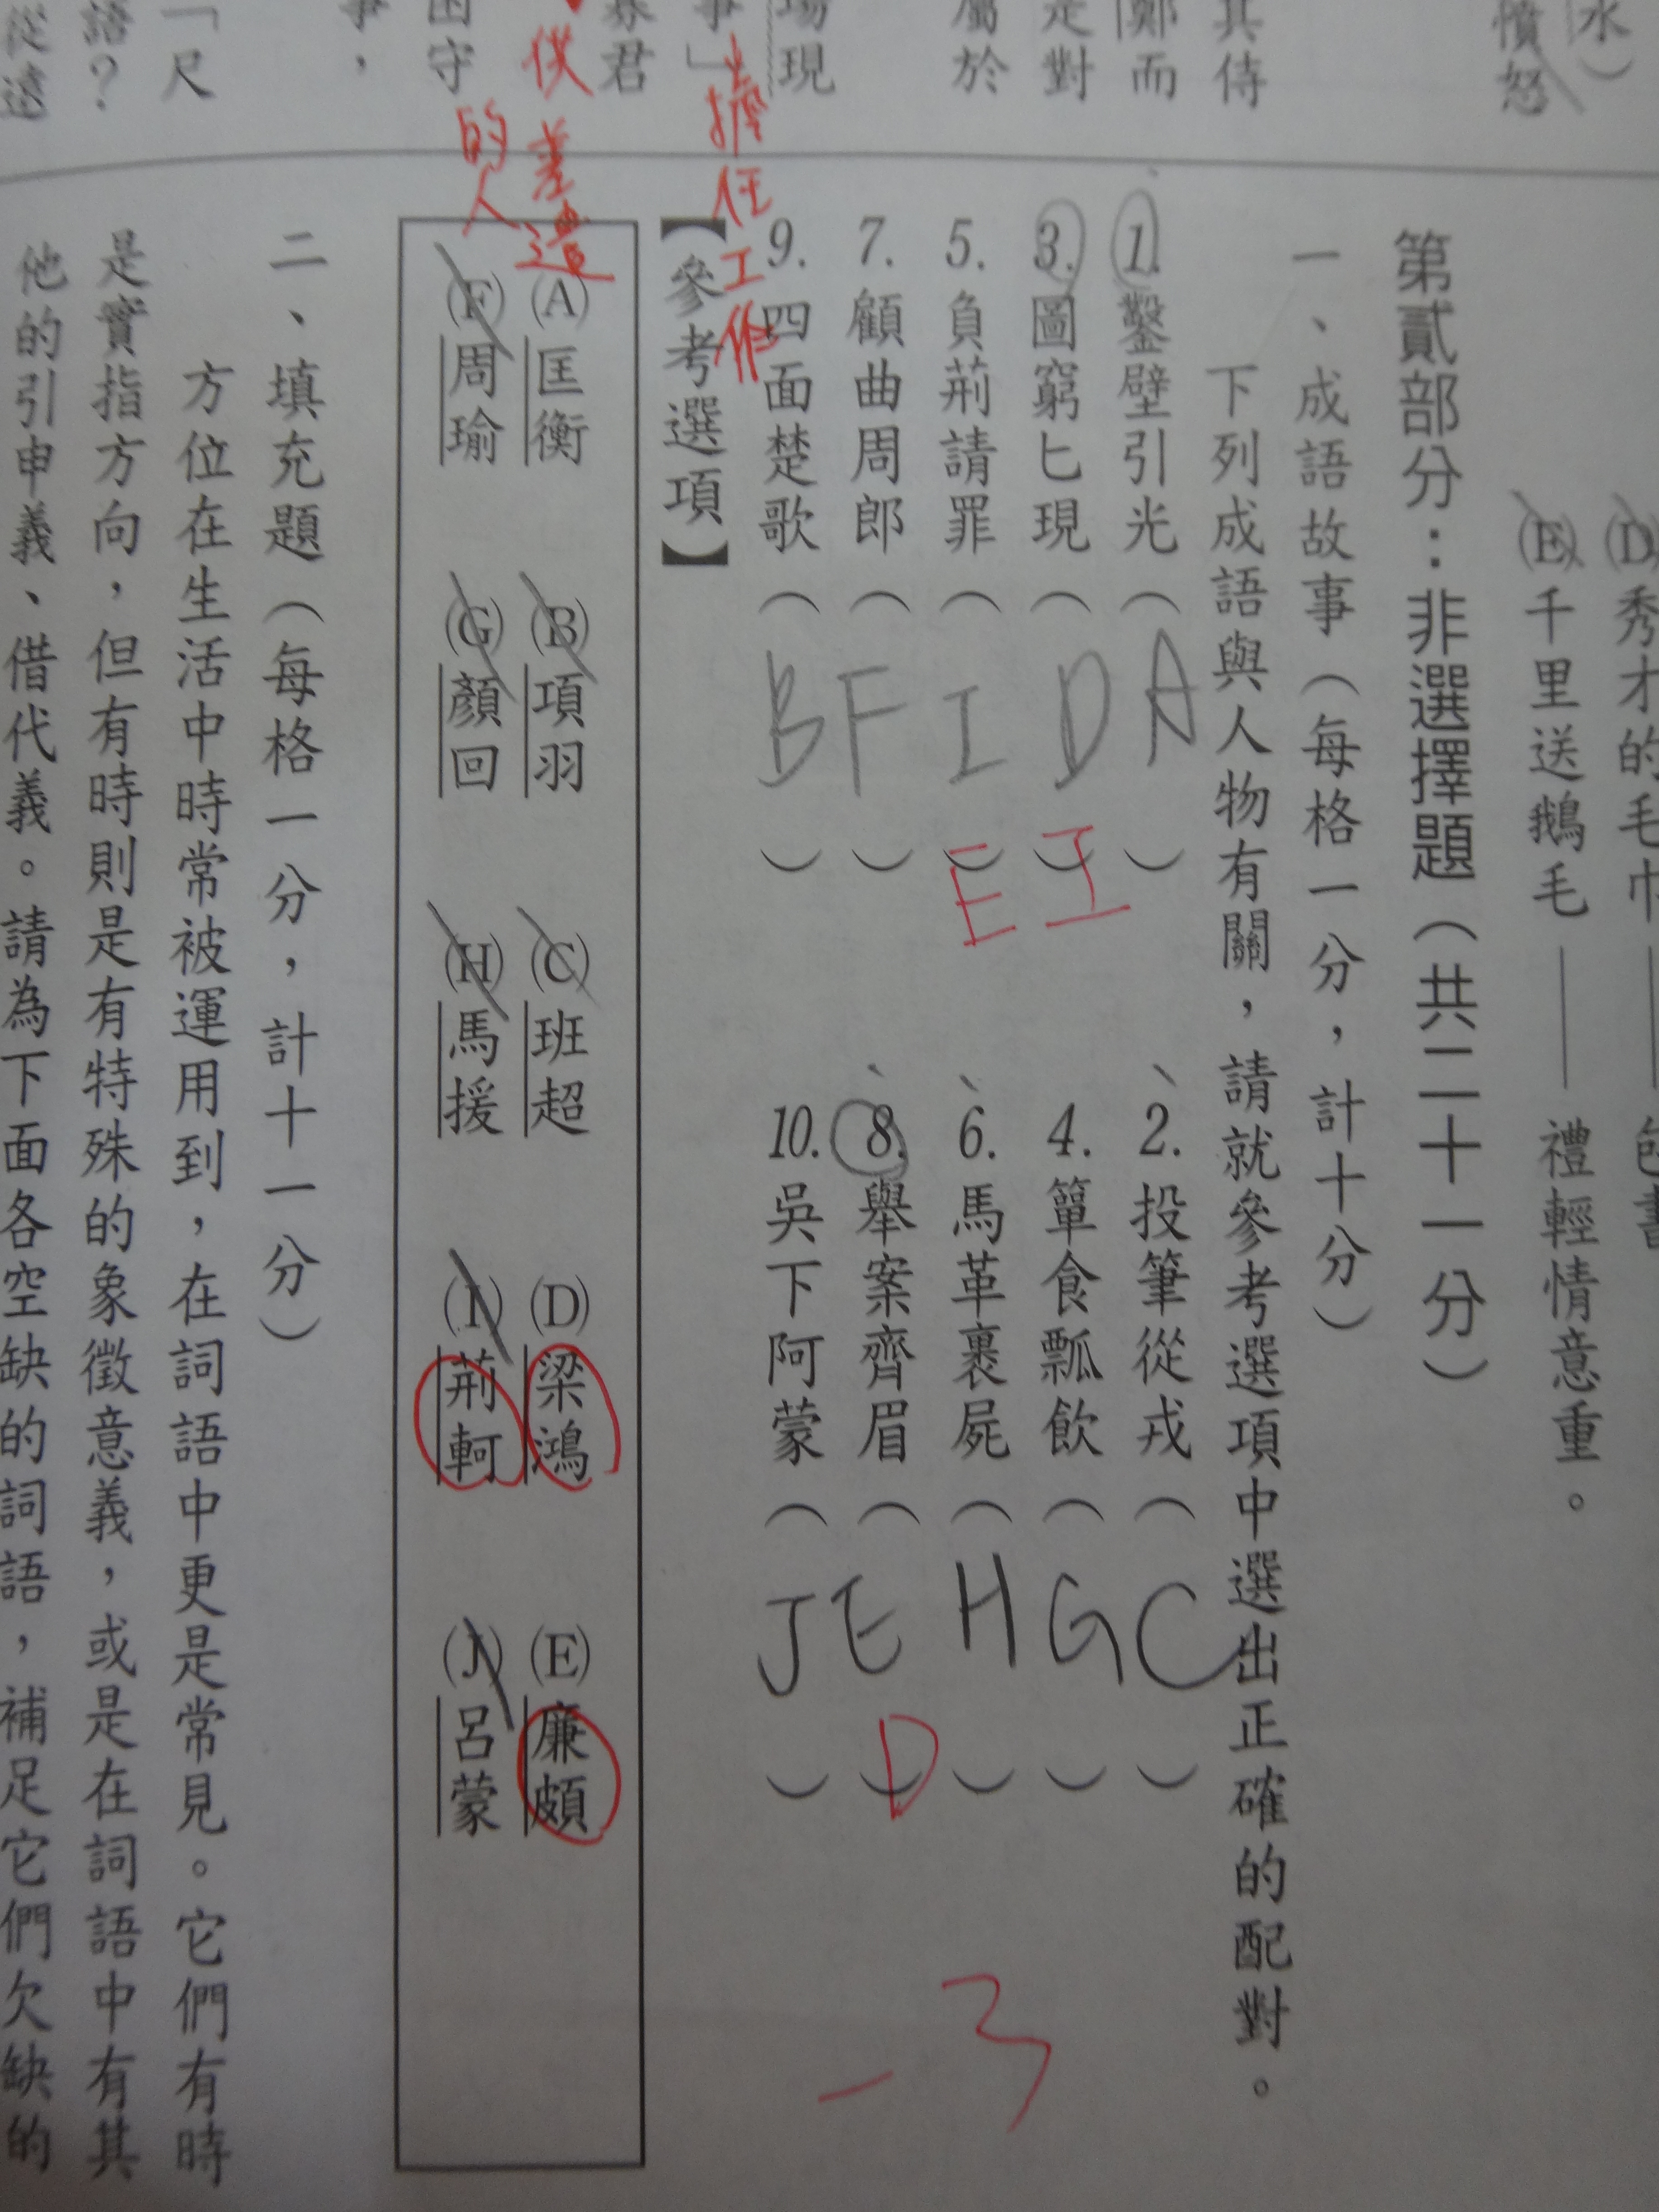 水）
憤怒
其侍
鄭而
是對
屬於
場現
事」擔任工作
寡君
供差遣
的人
困守
事，
「尺
語？
從遠
(D)秀才的毛巾——包書
(E)千里送鵝毛——禮輕情意重。
第貳部分：非選擇題（共二十一分）
一、成語故事（每格一分，計十分）
下列成語與人物有關，請就參考選項中選出正確的配對。
1.鑿壁引光（A）
2.投筆從戎（C）
3.圖窮匕現（D）I
4.簞食瓢飲（G）
5.負荊請罪（I）E
6.馬革裹屍（H）
7.顧曲周郎（F）
8.舉案齊眉（E）D
9.四面楚歌（B）
10.吳下阿蒙（J）
-3
【參考選項】
(A)匡衡 (B)項羽 (C)班超 (D)梁鴻 (E)廉頗
(F)周瑜 (G)顏回 (H)馬援 (I)荊軻 (J)呂蒙
二、填充題（每格一分，計十一分）
方位在生活中時常被運用到，在詞語中更是常見。它們有時
是實指方向，但有時則是有特殊的象徵意義，或是在詞語中有其
他的引申義、借代義。請為下面各空缺的詞語，補足它們欠缺的